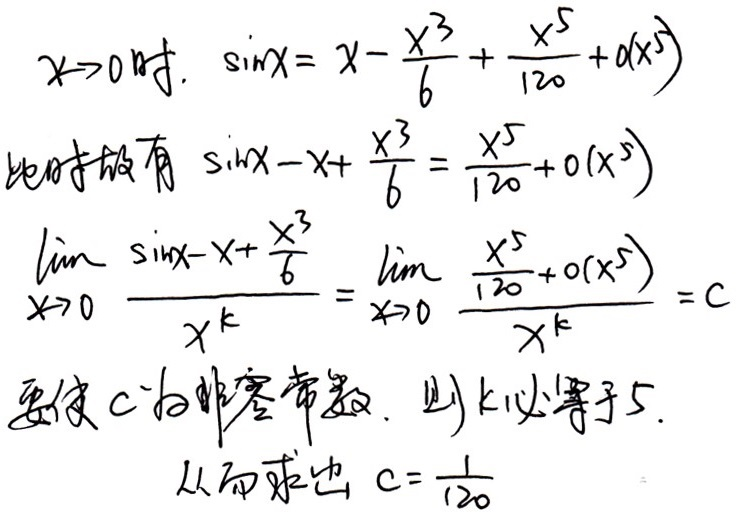 x→0时. sinx = x - x³/6 + x⁵/120 + o(x⁵)
此时故有 sinx - x + x³/6 = x⁵/120 + o(x⁵)
lim x→0 (sinx - x + x³/6)/x^k = lim x→0 (x⁵/120 + o(x⁵))/x^k = c
要使 c 为非零常数. 则 k 必等于 5.
从而求出 c = 1/120